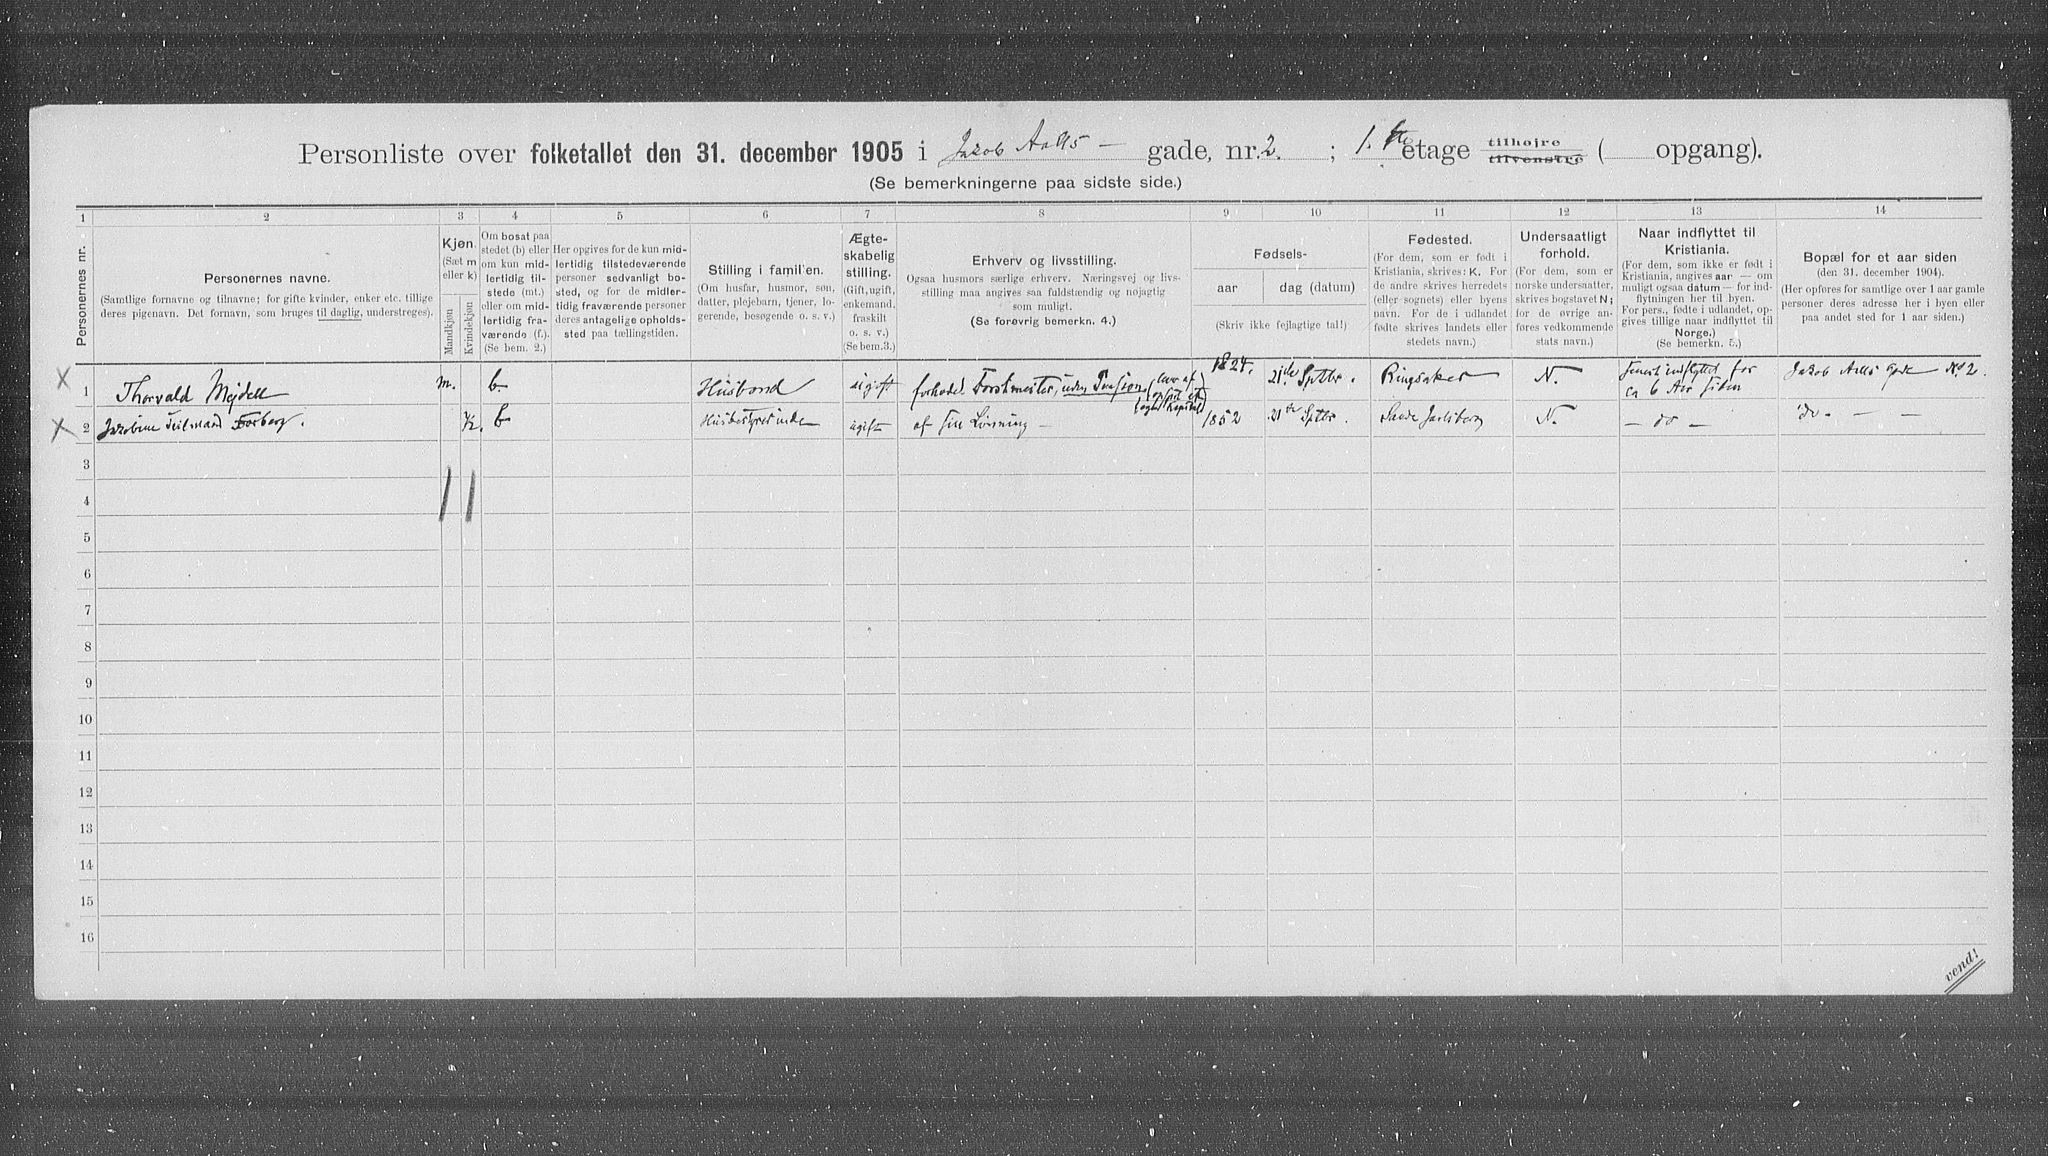 Personliste over folketallet den 31. december 1905 i Jacob Aalls — gade, nr. 2. ; 1.ste etage tilhøjre tilvenstre ( opgang).
(Se bemerkningerne paa sidste side.)
1 2 3 4 5 6 7 8 9 10 11 12 13 14
Personernes nr.
Personernes navne.
(Samtlige fornavne og tilnavne; for gifte kvinder, enker etc. tillige
deres pigenavn. Det fornavn, som bruges til daglig, understreges).
Kjøn.
(Sæt m
eller k)
Mandkjøn
Kvindekjøn
Om bosat paa
stedet (b) eller
om kun mid-
lertidig til-
stede (mt.)
eller om mid-
lertidig fra-
værende (f.).
(Se bem. 2.)
Her opgives for de kun mid-
lertidig tilstedeværende
personer sedvanligt bo-
sted, og for de midler-
tidig fraværende personer
deres antagelige opholds-
sted paa tællingstiden.
Stilling i familien.
(Om husfar, husmor, søn,
datter, plejebarn, tjener, lo-
gerende, besøgende o. s. v.)
Ægte-
skabelig
stilling.
(Gift, ugift,
enkemand,
fraskilt
o. s. v.)
(Se bem. 3.)
Erhverv og livsstilling.
Ogsaa husmors særlige erhverv. Næringsvej og livs-
stilling maa angives saa fuldstændig og nøjagtig
som muligt.
(Se forøvrig bemerkn. 4.)
Fødsels-
aar
dag (datum)
(Skriv ikke fejlagtige tal!)
Fødested.
(For dem, som er født i
Kristiania, skrives: K. For
de andre skrives herredets
(eller sognets) eller byens
navn. For de i udlandet
fødte skrives landets eller
stedets navn.)
Undersaatligt
forhold.
(For dem, som er
norske undersaatter,
skrives bogstavet N;
for de øvrige an-
føres vedkommende
stats navn.)
Naar indflyttet til
Kristiania.
(For dem, som ikke er født i
Kristiania, angives aar — om
muligt ogsaa datum — for ind-
flytningen her til byen.
For pers., fødte i udlandet, op-
gives tillige naar indflyttet til
Norge.)
(Se bemerkn. 5.)
Bopæl for et aar siden
(den 31. december 1904).
(Her opføres for samtlige over 1 aar gamle
personer deres adresse her i byen eller
paa andet sted for 1 aar siden.)
X 1 Thorvald Mejdell m. b Husbond ugift forhv. Forstmester, uden Pension (lever af opspt. Kapital) 1824. 21de Septbr. Ringsaker N. indflyttet for ca 6 Aar siden Jacob Aalls Gade No 2.
X 2 Jacobine Teilmand Forberg. K. b Husbestyrerinde ugift af sin Lønning — 1852 21de Septbr. Sande Jarlsberg N. — do — do. — —
3
4
5
6
7
8
9
10
11
12
13
14
15
16
vend!